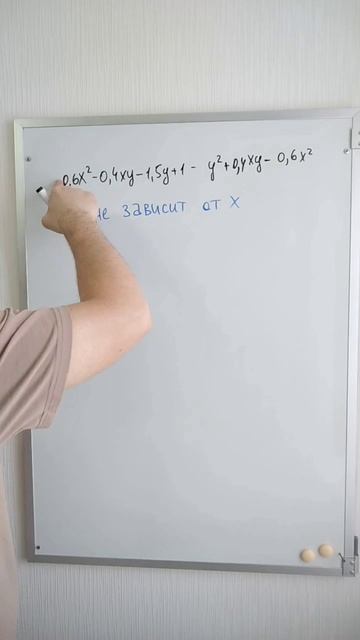 0,6x²-0,4xy-1,5y+1- y²+0,4xy-0,6x²
не зависит от x